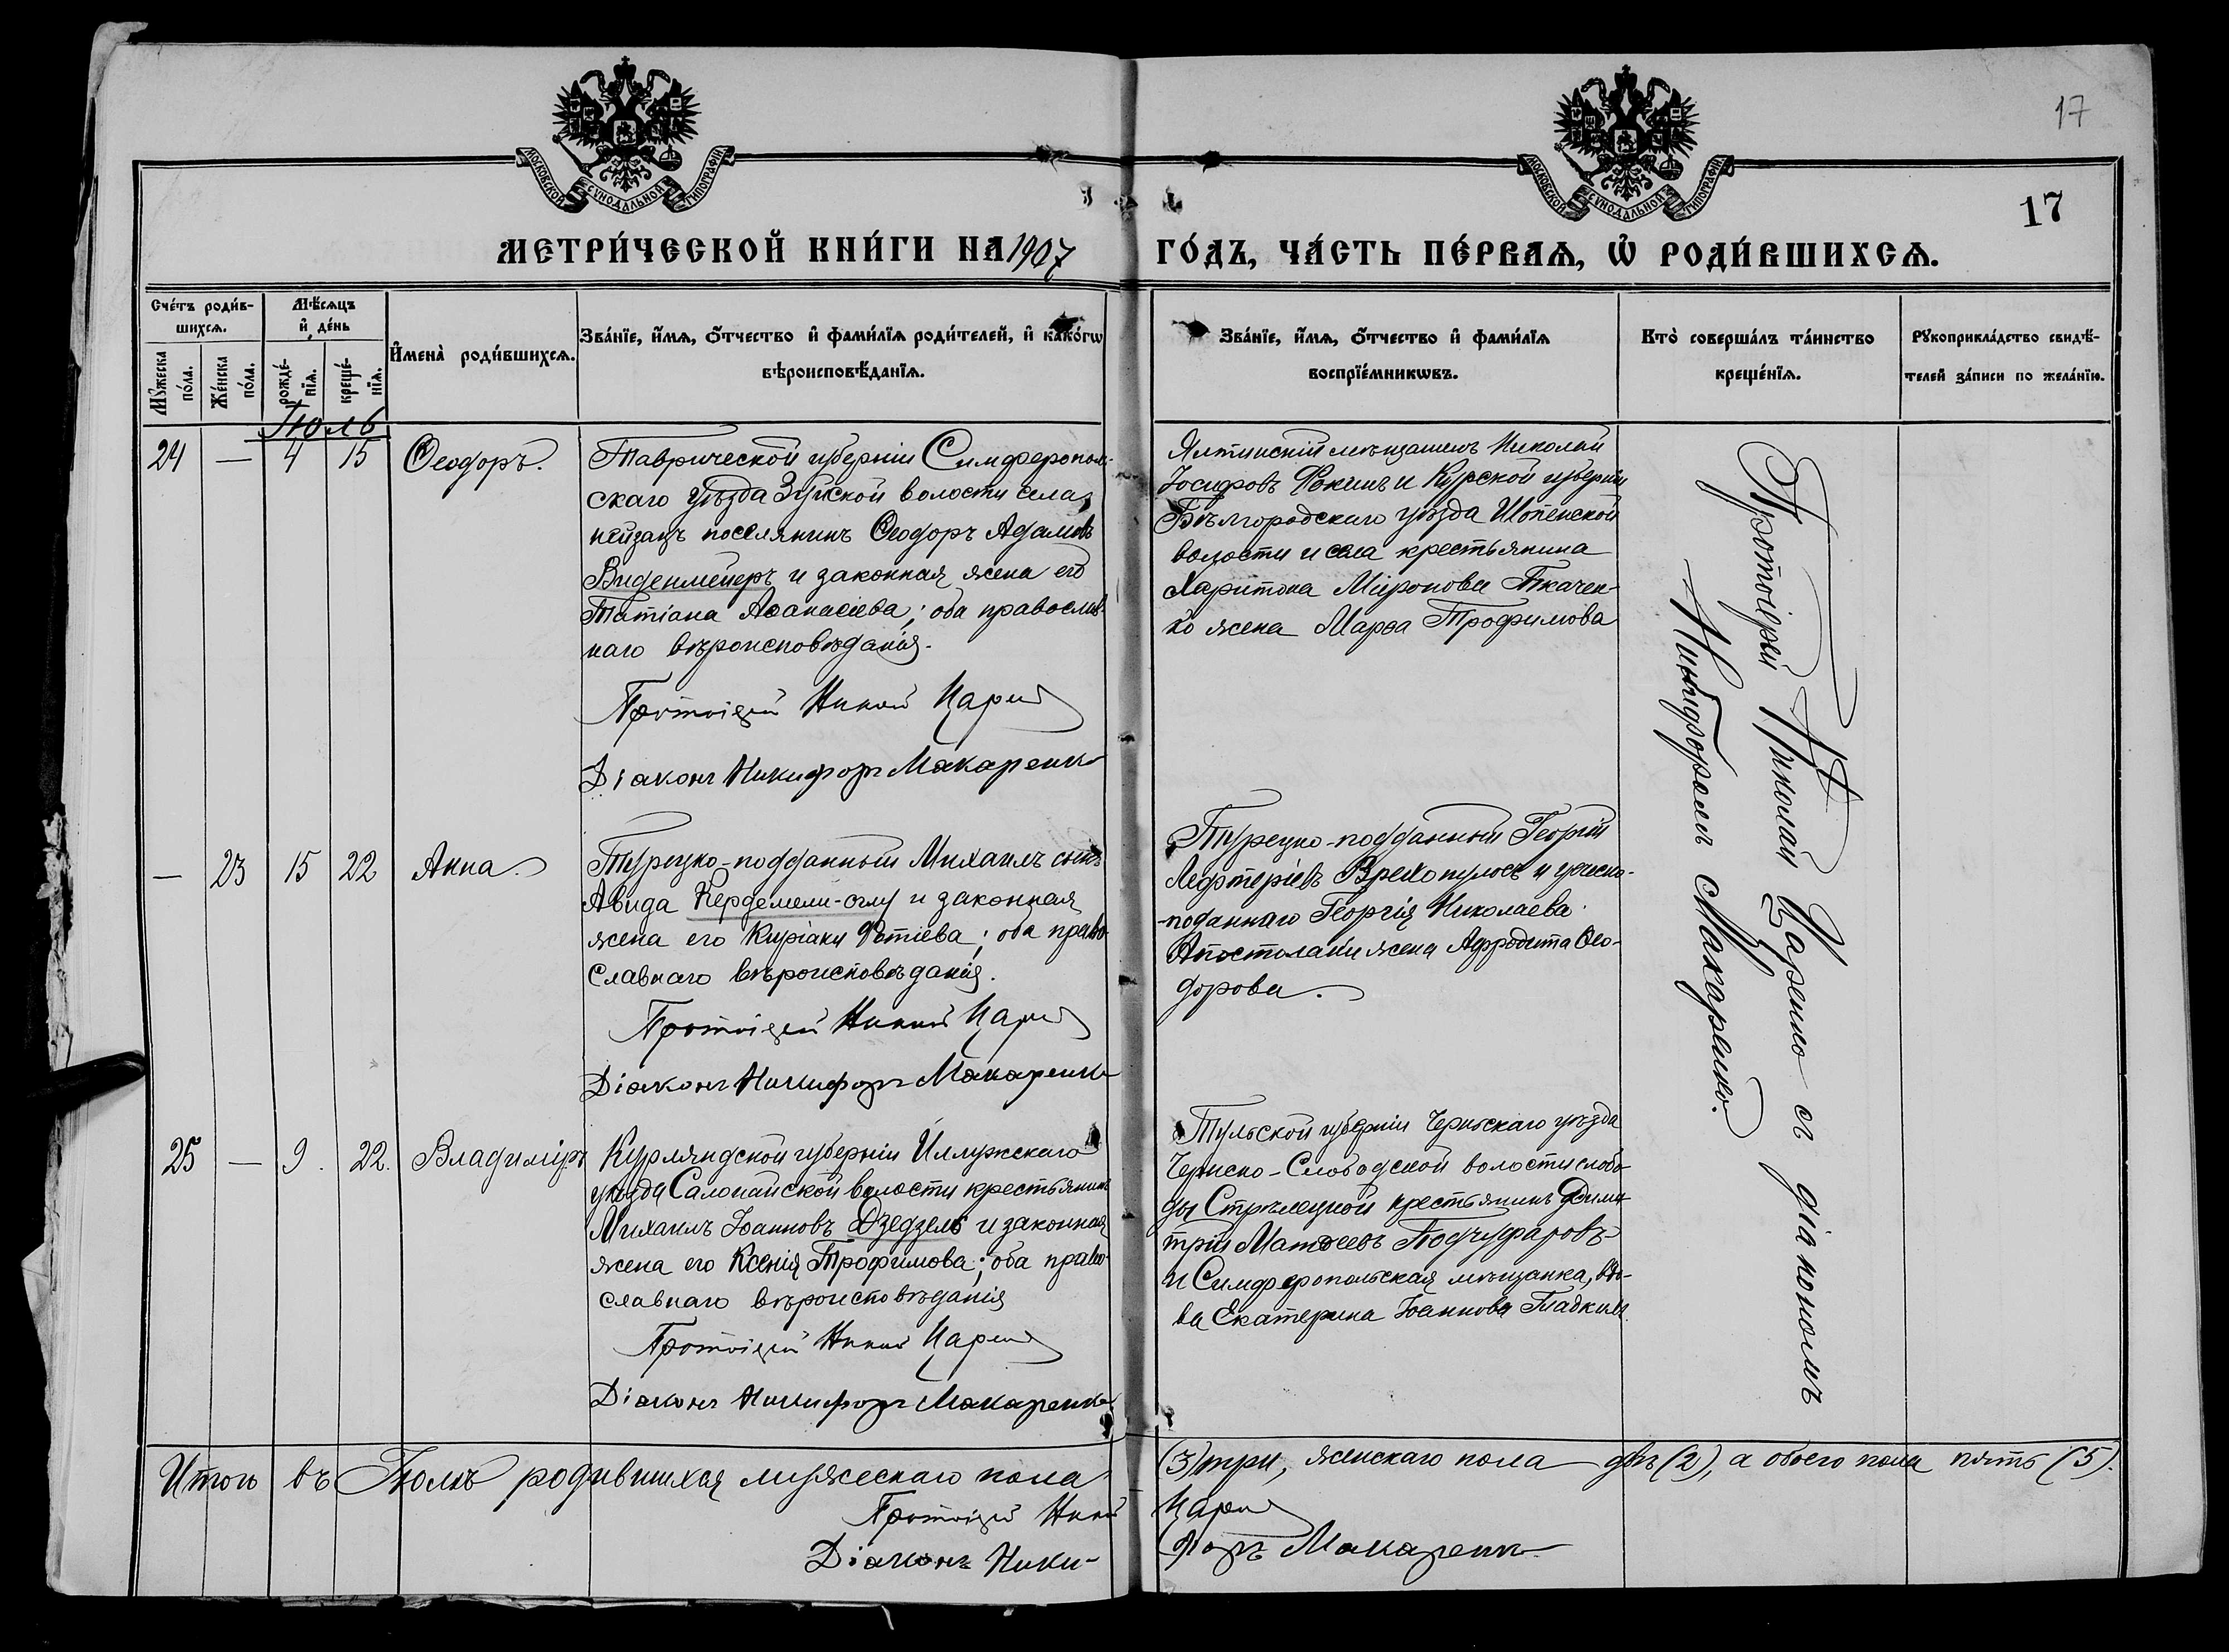 17
МОСКОВСКОЙ СѴНОДАЛЬНОЙ ТИПОГРАФІИ
МОСКОВСКОЙ СѴНОДАЛЬНОЙ ТИПОГРАФІИ
17
МЕТРИ́ЧЕСКОЙ КНИ́ГИ НА 1907 ГО́ДЪ, ЧА́СТЬ ПЕ́РВАѦ, Ѽ РОДИ́ВШИХСѦ.
Сче́тъ роди́в-
шихсѧ.
Мꙋжеска по́ла.
Же́нска по́ла.
Мѣ́сѧцъ
и҆ де́нь
рожде́-
нїѧ.
креще́-
нїѧ.
И҆мена̀ роди́вшихсѧ.
Зва́нїе, и҆́мѧ, ѻ҆́тчество и҆ фами́лїѧ роди́телей, и҆ како́гѡ
вѣроисповѣ́данїѧ.
Зва́нїе, и҆́мѧ, ѻ҆́тчество и҆ фами́лїѧ
воспрїе́мникѡвъ.
Кто̀ соверша́лъ та́инство
креще́нїѧ.
Рꙋкоприкла́дство свидѣ́-
телей за́писи по жела́нїю.
Іюль
24 — 4 15 Ѳеодоръ.
Таврической губерніи Симферополь-
скаго уѣзда Зуйской волости села
нейзацъ поселянинъ Ѳеодоръ Адамовъ
Виденмейеръ и законная жена его
Татіана Аѳанасіева; оба православ-
наго вѣроисповѣданія.
Протоіерей Николай Царен
Діаконъ Никифоръ Макаренко
Ялтинскій мѣщанинъ Николай
Іосифовъ Фокинъ и Курской губерніи
Бѣлгородскаго уѣзда Шопенской
волости и села крестьянина
Харитона Миронова Ткачен-
ко жена Марѳа Трофимова
Протоіерей Николай Царенко съ діакономъ
Никифоромъ Макаренко.
— 23 15 22 Анна.
Турецко-подданный Михаилъ сынъ
Авида Кердемели-оглу и законная
жена его Киріаки Фотіева; оба право-
славнаго вѣроисповѣданія.
Протоіерей Николай Царен
Діаконъ Никифоръ Макаренко
Турецко-подданный Георгій
Лефтеріевъ Врехопулосъ и
-поданнаго Георгія Николаева
Апостолаки жена Афродита Ѳео-
дорова.
25 — 9. 22. Владиміръ
Курляндской губерніи Иллукскаго
уѣзда Салонайской волости крестьянинъ
Михаилъ Іоанновъ Дзедзель и законная
жена его Ксенія Трофимова; оба право-
славнаго вѣроисповѣданія
Протоіерей Николай Царен
Діаконъ Никифоръ Макаренко
Тульской губерніи Чернскаго уѣзда
Чернско-Слободской волости слобо-
ды Стрѣлецкой крестьянинъ Дими-
трій Матѳеевъ Подчуфаровъ
и Симферопольская мѣщанка, вдо-
ва Екатерина Іоаннова Гладкихъ.
Итого въ Іюлѣ родившихся мужескаго пола (3) три, женскаго пола двѣ (2), а обоего пола пять (5).
Протоіерей Николай Царен
Діаконъ Ники-форъ Макаренко